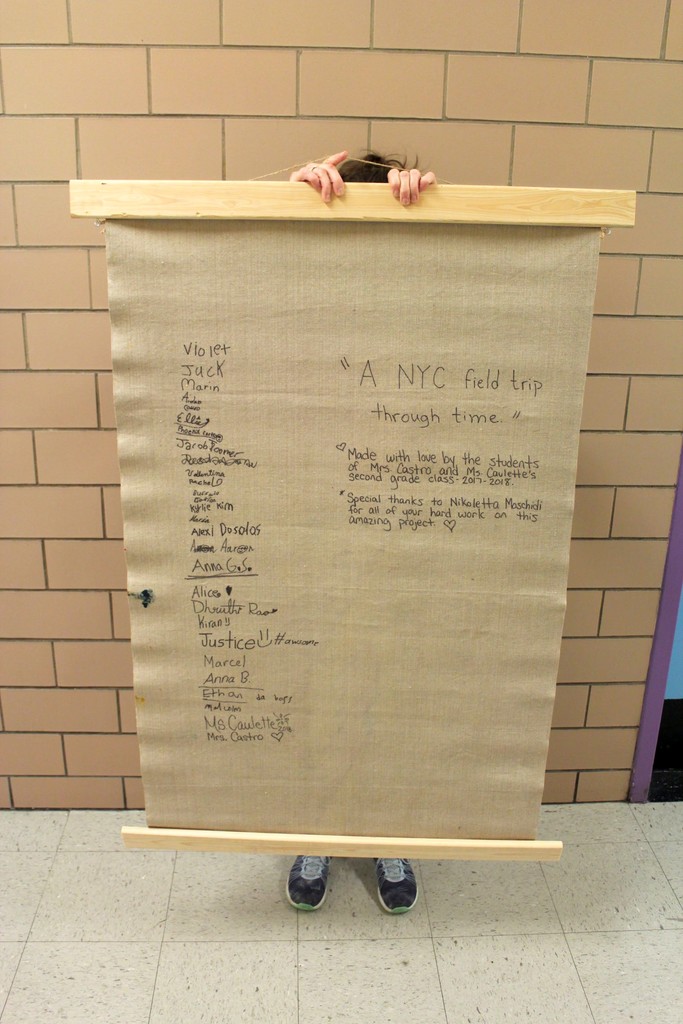 Violet
Jack
Marin
Ellis
Jacob Roemer
Valentina
Kylie Kim
Alexi Dosolas
Aaron
Anna G.S.
Alice
Dhruthi Rao
Kiran
Justice #awesome
Marcel
Anna B.
Ethan da boss
Malcolm
Ms Caulette
Mrs. Castro
"A NYC field trip
through time."
Made with love by the students
of Mrs Castro and Ms. Caulette's
second grade class - 2017-2018.
* Special thanks to Nikoletta Moschidi
for all of your hard work on this
amazing project.